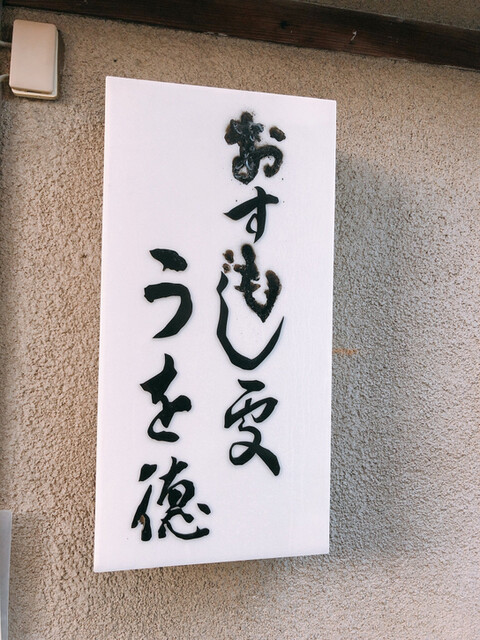 おすもじ処
うを徳